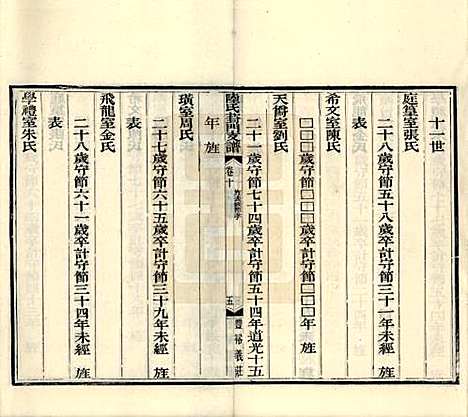 十一世
庭萱室張氏
二十八歲守節五十八歲卒計守節三十一年未經 旌
表
希文室陳氏
□□□歲守節□□□歲卒計守節□□□年
天爵室劉氏
二十一歲守節七十四歲卒計守節五十四年道光十五
陸氏葑門支譜 卷十 五 豐裕義莊
年 旌
璜室周氏
二十七歲守節六十五歲卒計守節三十九年未經 旌
表
飛龍室金氏
二十八歲守節六十一歲卒計守節三十四年未經 旌
表
學禮室朱氏